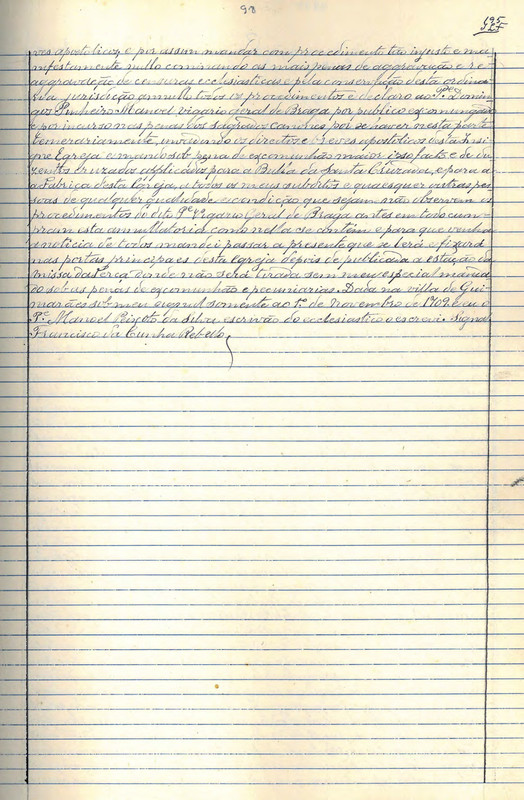 98
195
ves apostolicos e por assim mandar com procedimento tão injusto e ma-
nifestamente nullo comminando as mais penas de aggravação e re-
aggravação de censuras ecclesiasticas e pela conservação desta ordina-
ria jurisdicção annullo todos os procedimentos e declaro ao Rdo Domin-
gos Pinheiro Manoel vigario geral de Braga por publico excommungado
e por incurso nas penas dos sagrados canones por se haver nesta parte
temerariamente,
os directos e breves apostolicos desta insi-
gne Egreja e mando sob pena de excommunhão maior ipso facto e de du-
zentos cruzados applicados para a Bulla da Santa Cruzada, e para a
a Fabrica desta Egreja, a todos os meus subditos e quaesquer outras pes-
soas de qualquer qualidade e condição que sejam não observem os
procedimentos do dito Rdo vigario Geral de Braga antes em tudo cum-
pram esta annullatoria como nella se contém e para que venha
a noticia de todos mandei passar a presente que se lerá e fixará
nas portas principaes desta Egreja depois de publicada á estação da
missa da Terça donde não será tirada sem meu especial manda-
do sob as penas de excommunhão e pecuniarias. Dada na villa de Gui-
marães sob meu signal somente ao 1º de Novembro de 1709 e eu o
Pe Manoel Peixoto da Silva escrivão do ecclesiastico o escrevi. Signal
Francisco da Cunha Rebello